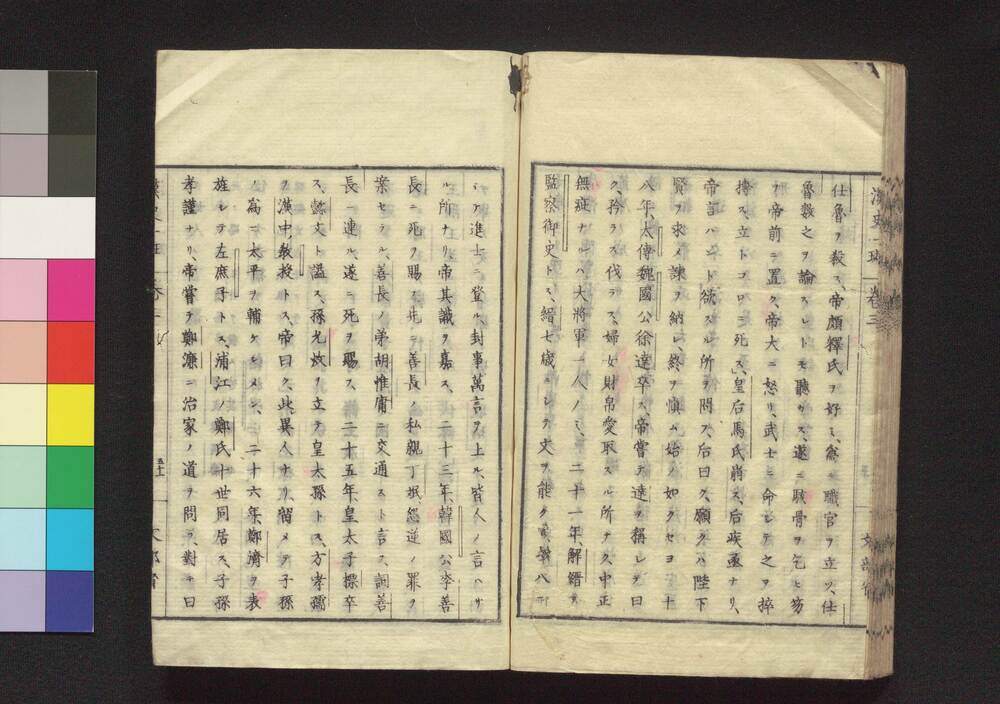 漢史一班 卷三
文部省
仕魯ヲ殺ス、帝頗釋氏ヲ好ミ、為ニ職官ヲ立ツ、仕
魯數之ヲ論スレトモ聽カス、遂ニ骸骨ヲ乞ヒ笏
ヲ帝前ニ置ク、帝大ニ怒リ、武士ニ命シテ之ヲ捽
搏ス、立トコロニ死ス、皇后馬氏崩ス、后疾亟ナリ、
帝言ハント欲スル所ヲ問フ、后曰ク、願クハ陛下
賢ヲ求メ諫ヲ納レ、終ヲ慎ム始ノ如クセヨ、十
八年、太傅魏國公徐達卒ス、帝嘗テ達ヲ稱シテ曰
ク、矜ラス伐ラス、婦女財帛愛取スル所ナク、中正
無疵ナルハ、大將軍一人ノミ、二十一年、解縉ヲ
監察御史トス、縉七歳ニシテ文ヲ能ク
進士ニ登ル、封事萬言ヲ上ル、皆人ノ言ハサ
ル所ナリ、帝其識ヲ嘉ス、二十三年、韓國公李善
長ニ死ヲ賜フ、
善長ノ私親丁
逆ノ罪ヲ
案セラル、善長ノ弟胡惟庸ニ交通スト言ス、詞善
長ニ連ル、遂ニ死ヲ賜フ、二十五年、皇太子標卒
ス、懿文ト謚ス、孫允炆ヲ立テ皇太孫トス、方孝孺
ヲ漢中教授トス、帝曰ク、此異人ナリ、留メテ子孫
ノ為ニ太平ヲ輔ケシメン、二十六年、鄭濟ヲ表
旌シテ左庶子トス、浦江ノ鄭氏十世同居ス、子孫
孝謹ナリ、帝嘗テ鄭濂ニ治家ノ道ヲ問フ、對テ曰